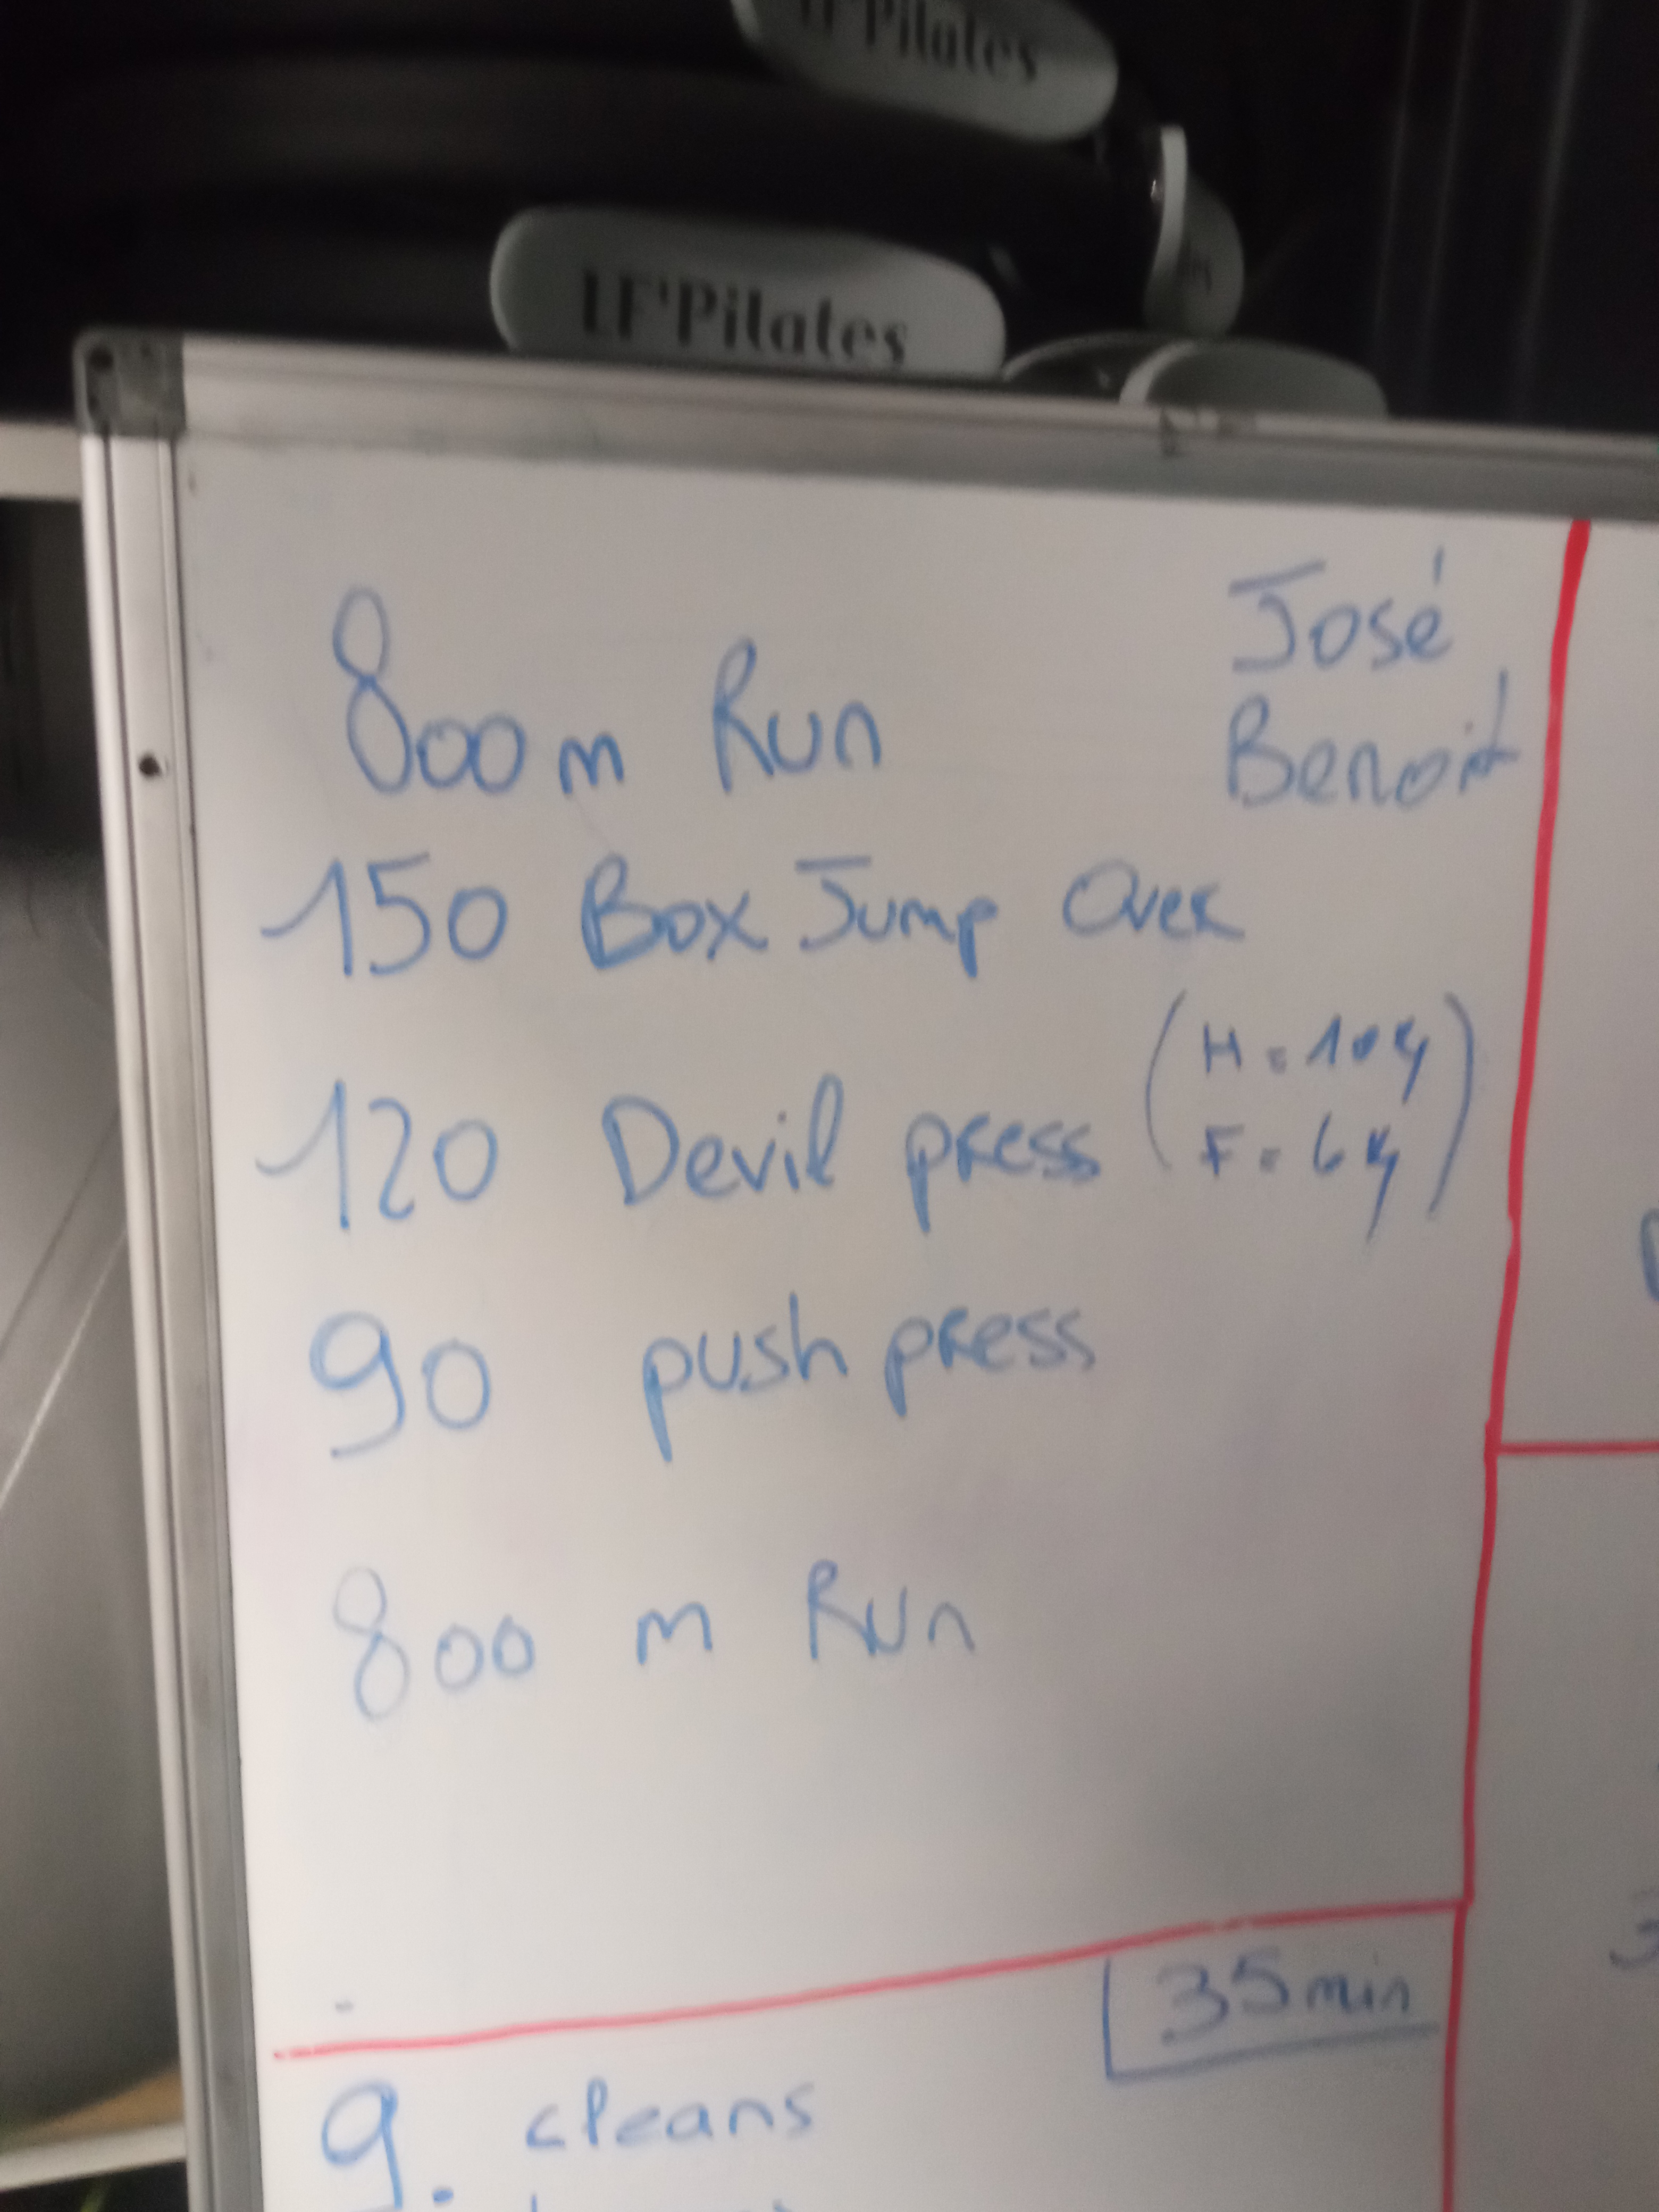 LF'Pilates
LF'Pilates
José
800m Run
Benoit
150 Box Jump Over
120 Devil press (H = 10kg
F = 6kg)
90 push press
800 m Run
35min
9. cleans